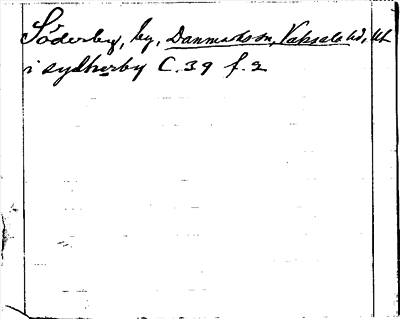 Söderby, by, Danmarks sn, Vaksala hd, Ul
i sydherby C. 39 f. 2